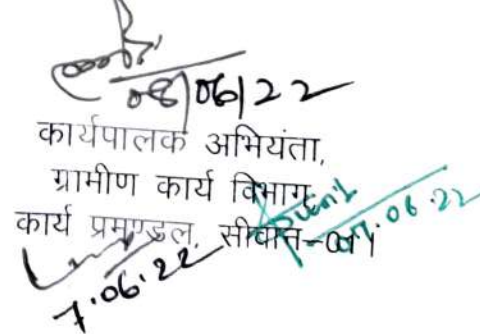 08/06/22
कार्यपालक अभियंता,
ग्रामीण कार्य विभाग
कार्य प्रमण्डल, सीवान-01
07.06.22
7.06.22